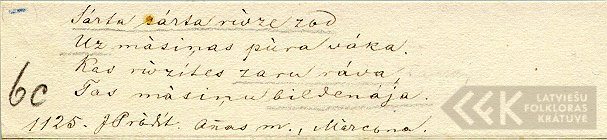 Sárta zárta rūze zod
Uz màsiņas pùra váka.
Kas rùzítes zaru ráva,
Tas màsiņu bildenája.
6c
1125. J Pròdt. Añas m., Mercona.
LATVIEŠU
FOLKLORAS
KRĀTUVE